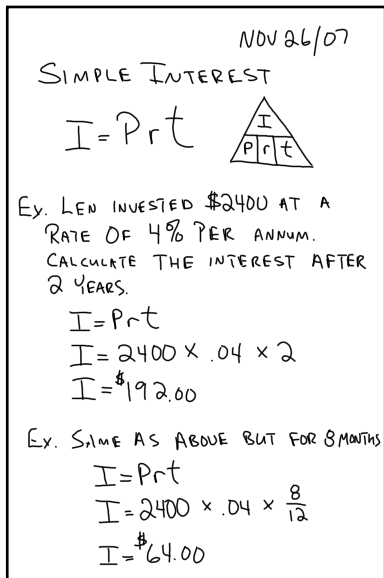 NOV 26/07
SIMPLE INTEREST
I = Prt
I
P r t
Ex. LEN INVESTED $2400 AT A
RATE OF 4% PER ANNUM.
CALCULATE THE INTEREST AFTER
2 YEARS.
I = Prt
I = 2400 × .04 × 2
I = $192.00
Ex. SAME AS ABOVE BUT FOR 8 MONTHS
I = Prt
I = 2400 × .04 × 8/12
I = $64.00